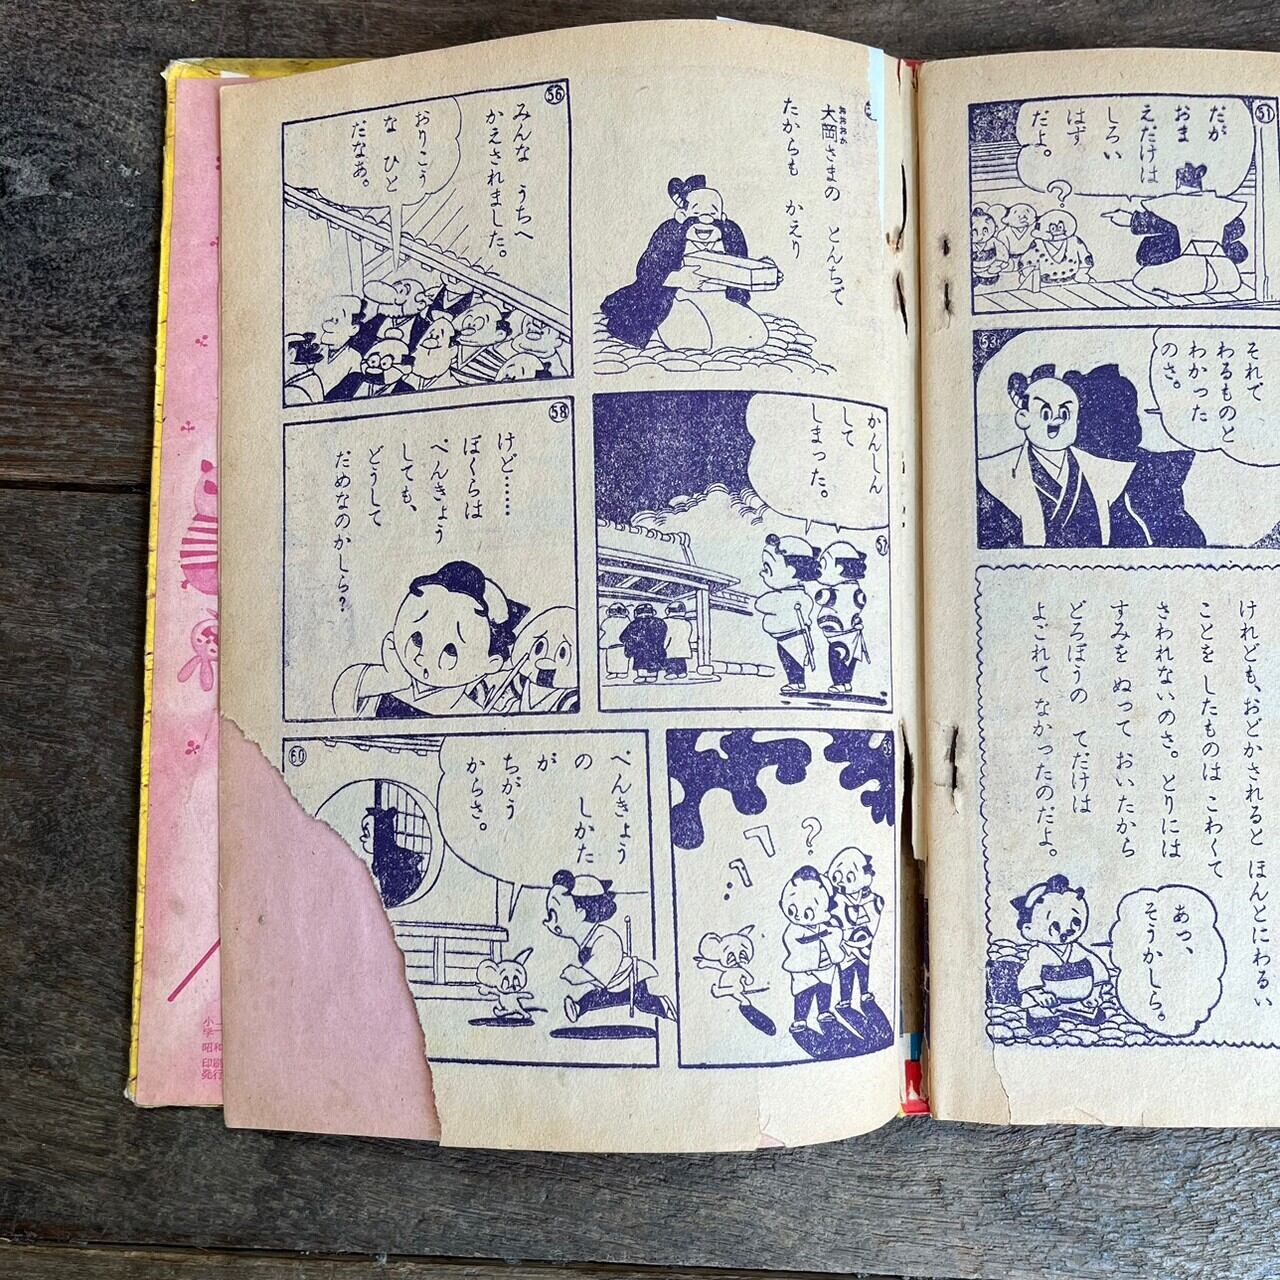 51
だが
おま
えだけは
しろい
はず
だよ。
53
それで
わるものと
わかった
のさ。
けれども、おどかされると ほんとにわるい
ことを したものは こわくて
さわれないのさ。とりには
すみを ぬって おいたから
どろぼうの てだけは
よごれて なかったのだよ。
あっ、
そうかしら。
大岡さまの とんちで
おおおか
たからも かえり
56
みんな うちへ
かえされました。
おりこう
な ひと
だなあ。
57
かんしん
して
しまった。
58
けど……
ぼくらは
べんきょう
しても、
どうして
だめなのかしら?
59
?
60
べんきょう
の しかた
が
ちがう
からさ。
小一
学
昭和
印刷
発行